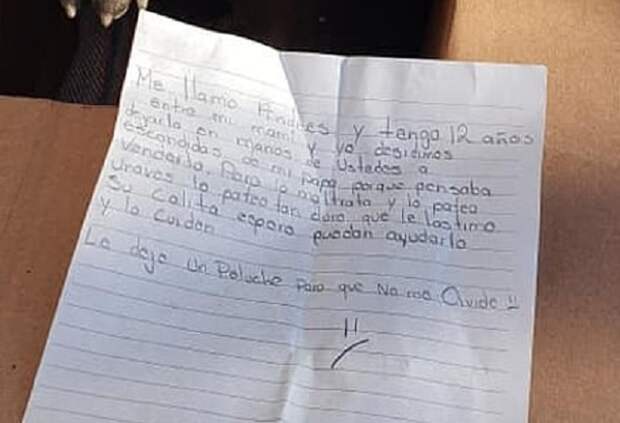 Me llamo Andres y tengo 12 años
entre mi mami y yo desidimos
dejarlo en manos de Ustedes a
escondidas de mi papá porque pensaba
venderlo. Pero lo maltrata y lo patea
unaves lo pateo tan duro que le lastimo
su colita espero puedan ayudarlo
y lo cuidan
Le dejo Un Peluche Para que No me Olvide